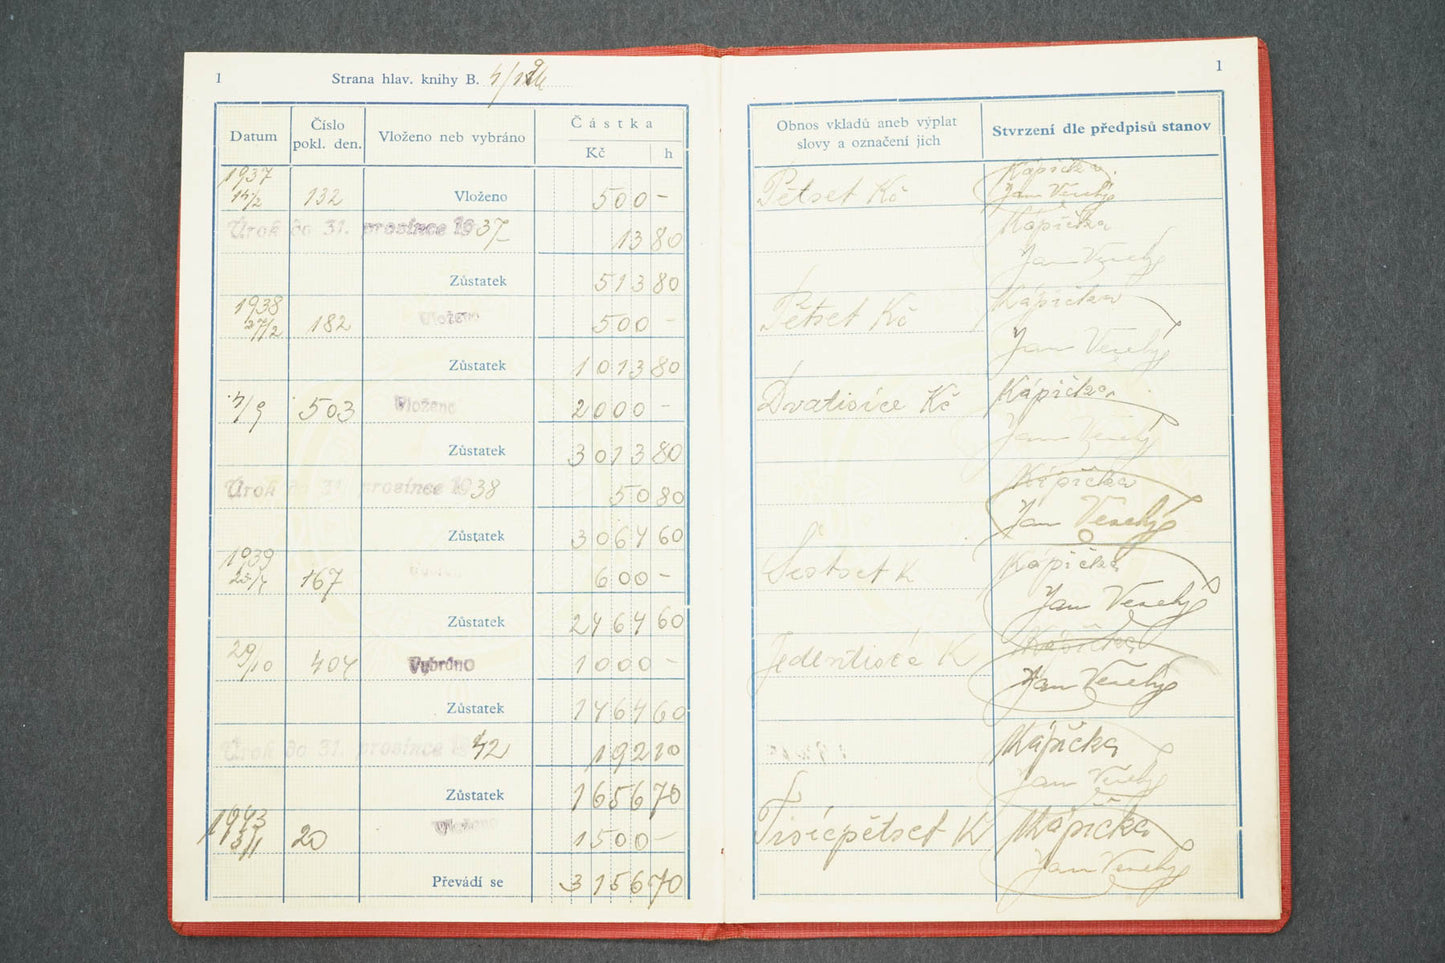 1 Strana hlav. knihy B.
Datum Číslo pokl. den. Vloženo neb vybráno Částka Kč h
1937
132 Vloženo 500 –
Úrok do 31. prosince 1937 13 80
Zůstatek 513 80
1938
27/2 182 Vloženo 500 –
Zůstatek 1013 80
4/9 503 Vloženo 2000 –
Zůstatek 3013 80
Úrok do 31. prosince 1938 50 80
Zůstatek 3064 60
1939
167 600 –
Zůstatek 2464 60
29/10 404 Vybráno 1000 –
Zůstatek 1464 60
Úrok do 31. prosince 1942 192 10
Zůstatek 1656 70
1943
20 Vloženo 1500 –
Převádí se 3156 70
1
Obnos vkladů aneb výplat slovy a označení jich Stvrzení dle předpisů stanov
Pětset Kč Kápička
Jan Veselý
Kápička
Jan Veselý
Pětset Kč Kápička
Jan Veselý
Dvatisíce Kč Kápička
Jan Veselý
Kápička
Jan Veselý
Šestset K Kápička
Jan Veselý
Jedentisíc K Kápička
Jan Veselý
Kápička
Jan Veselý
Tisícpětset K Kápička
Jan Veselý